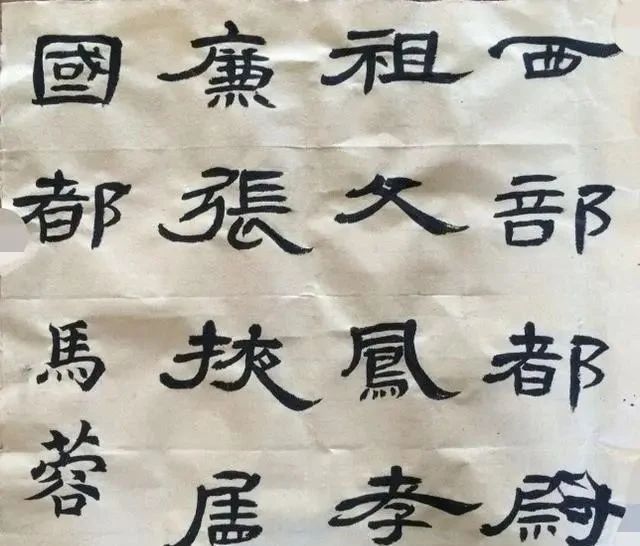 西部都尉
祖父鳳孝
廉張掖屬
國都
馬蓉